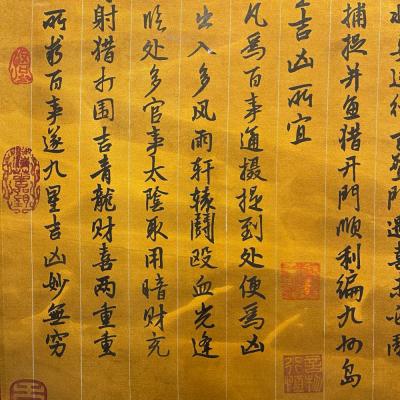 門遇喜
捕捉并魚猎开門順利编九州岛
吉凶所宜
凡為百事通摄提到处便為凶
出入多风雨轩辕鬪殴血光逢
临处多官事太陰取用暗财充
射猎打围吉青龍财喜两重重
所百事遂九星吉凶妙無穷